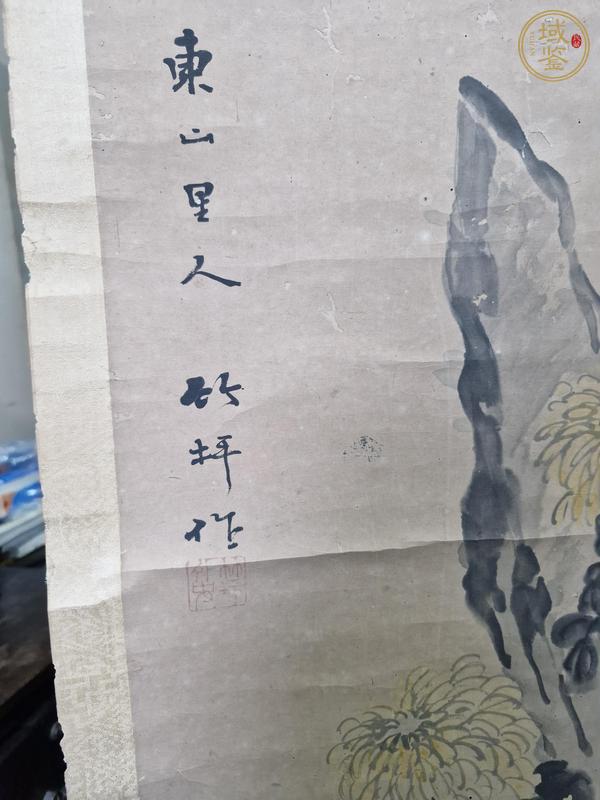 東山里人 竹坪作
域鉴